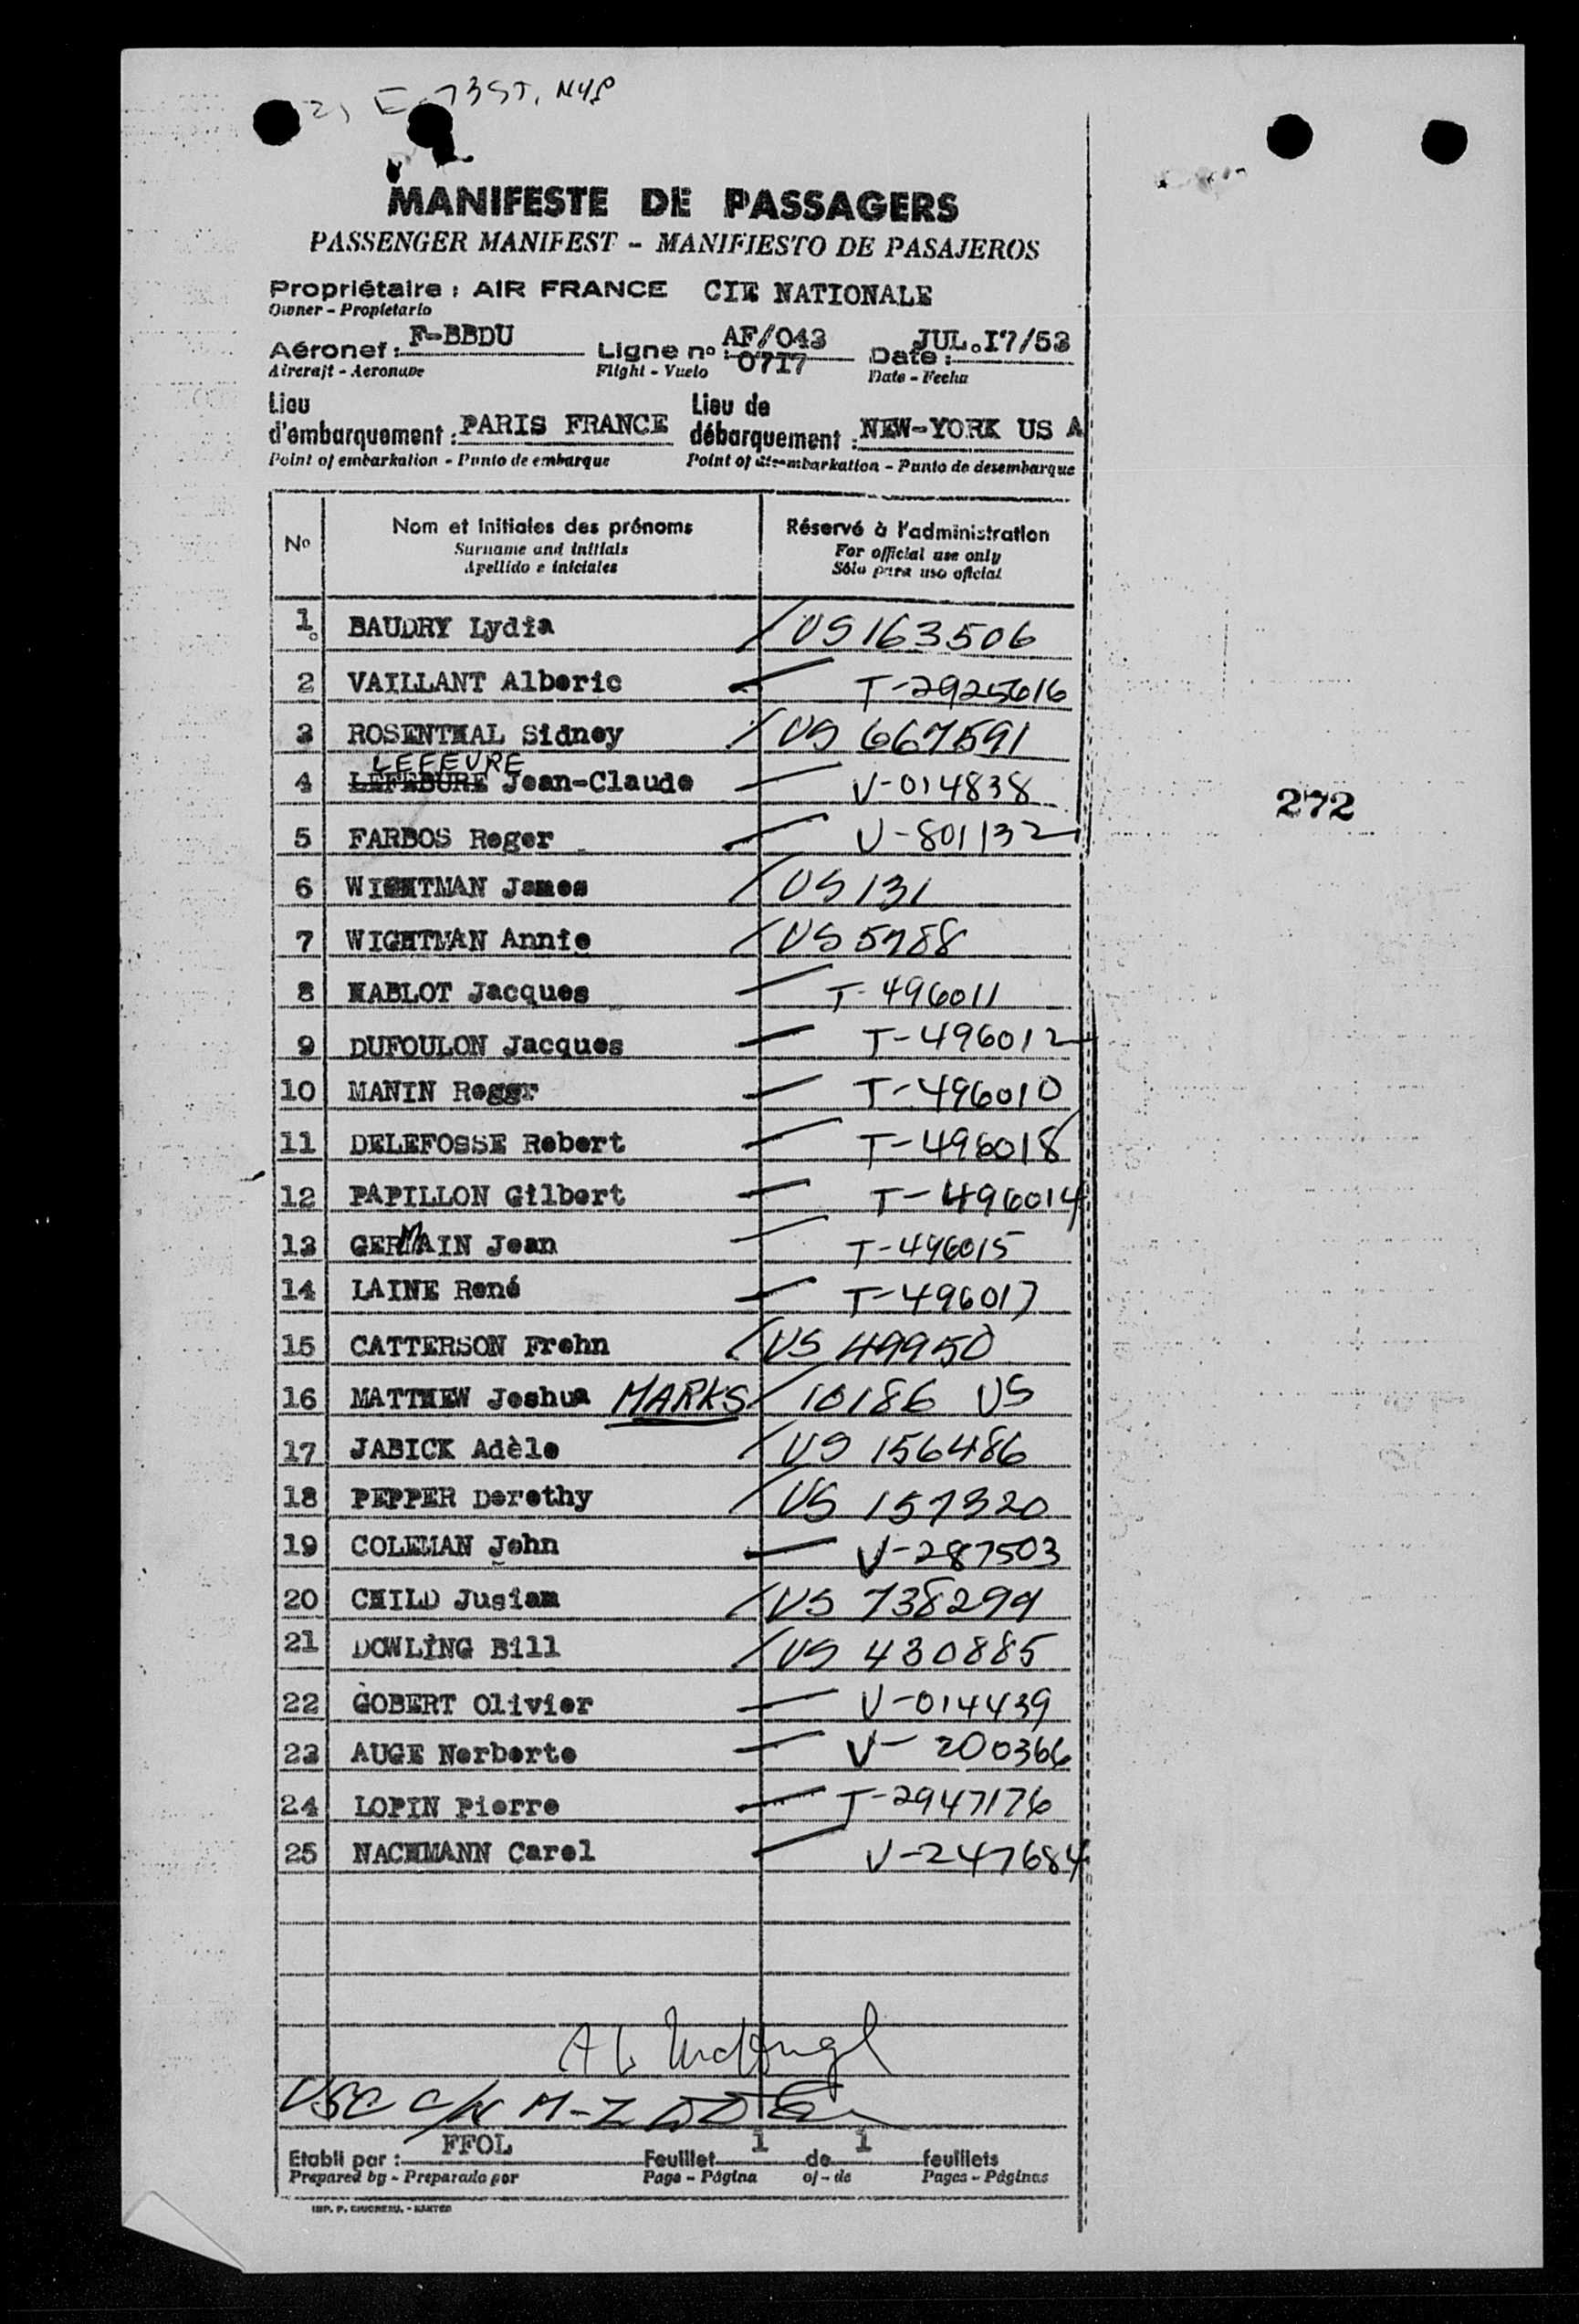 E 73 ST, NYC
MANIFESTE DE PASSAGERS
PASSENGER MANIFEST - MANIFIESTO DE PASAJEROS
Propriétaire : AIR FRANCE CIE NATIONALE
Owner - Propietario
Aéronef : F-BBDU Ligne no : AF/043 0717 Date : JUL.I7/53
Aircraft - Aeronave Flight - Vuelo Date - Fecha
Lieu d'embarquement : PARIS FRANCE Lieu de débarquement : NEW-YORK US A
Point of embarkation - Punto de embarque Point of disembarkation - Punto de desembarque
No Nom et initiales des prénoms Réservé à l'administration
Surname and initials For official use only
Apellido e iniciales Sólo para uso oficial
1. BAUDRY Lydia US 163506
2 VAILLANT Alberic T-2925616
3 ROSENTHAL Sidney US 667591
LEFEVRE
4 LEFEBURE Jean-Claude V-014838
5 FARBOS Roger V-801132
6 WIGHTMAN James US 131
7 WIGHTMAN Annie US 5788
8 HABLOT Jacques T-496011
9 DUFOULON Jacques T-496012
10 MANIN Roger T-496010
11 DELEFOSSE Robert T-496018
12 PAPILLON Gilbert T-496014
13 GERMAIN Jean T-496015
14 LAINE René T-496017
15 CATTERSON Frohn US 49950
16 MATTHEW Joshua MARKS 10186 US
17 JABICK Adèle US 156486
18 PEPPER Dorothy US 157320
19 COLEMAN John V-287503
20 CHILD Jusiam US 738299
21 DOWLING Bill US 430885
22 GOBERT Olivier V-014439
23 AUGE Norberto V-200366
24 LOPIN Pierre T-2947176
25 NACHMANN Carol V-247684
272
USC
Etabli par : FFOL Feuillet 1 de 1 feuillets
Prepared by - Preparado por Page - Página of - de Pages - Páginas